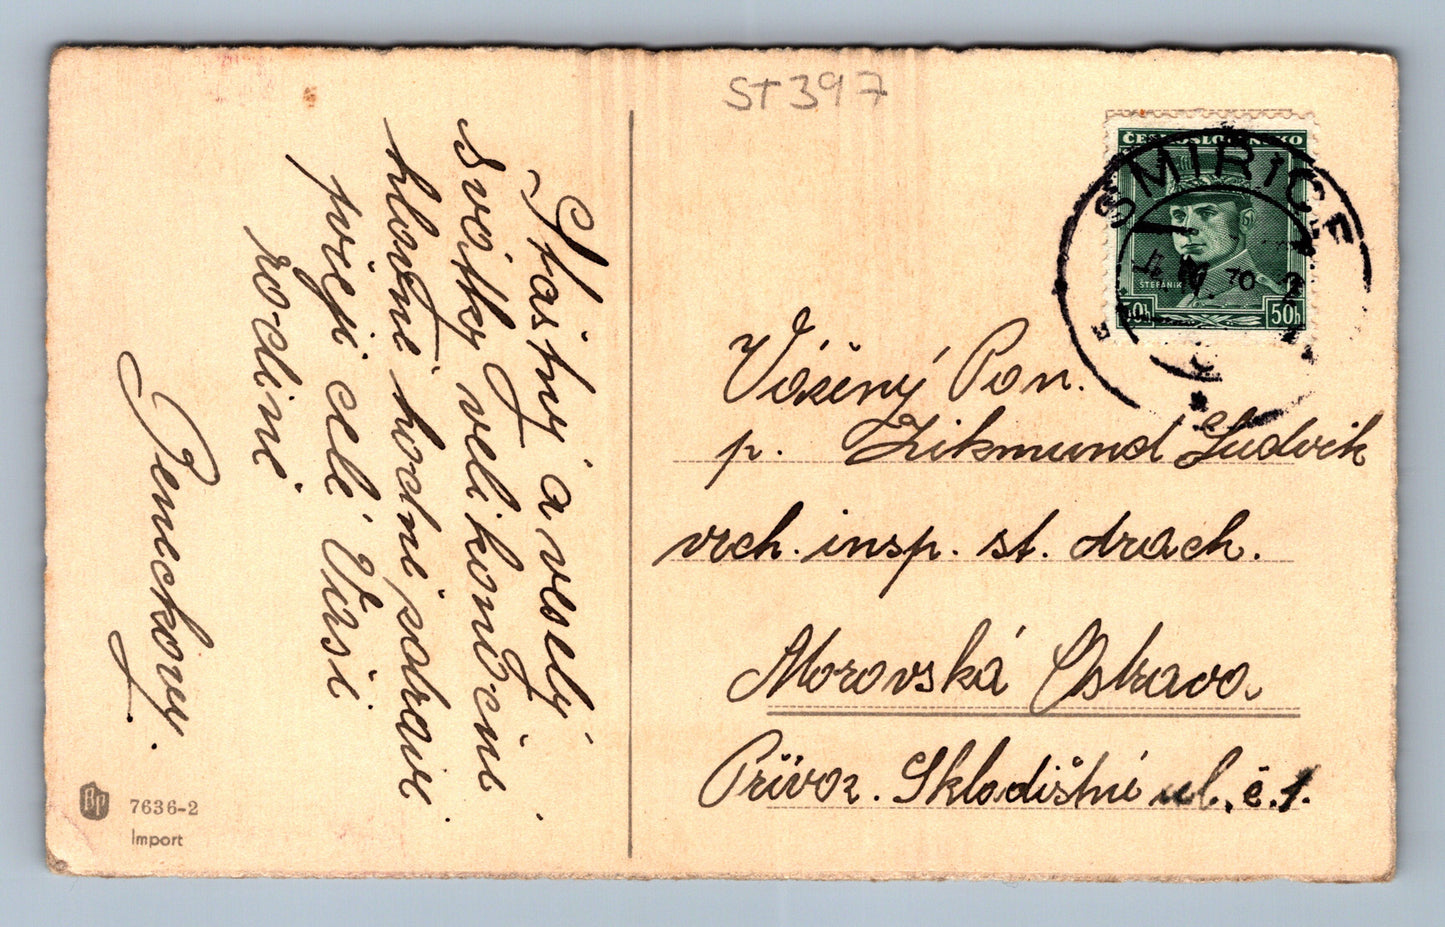 ST397
Štastny a veselý
svátky velikonoční
hlavně hodně zdraví
přeji celé Vaší
rodině
Beneckovy.
BP
7636-2
Import
ČESKOSLOVENSKO
ŠTEFÁNIK
50h
50h
SMIŘICE
Vážený Pan.
p. Zikmund Ludvik
vrch. insp. st. drach.
Moravská Ostrava
Přívoz. Skladištní ul. č. 1.